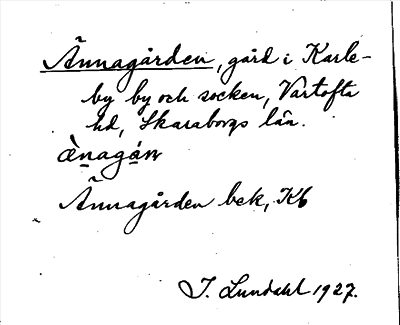 Ännagården, gård i Karle-
by by och socken, Vartofta
hd, Skaraborgs län.
ä̀nagáṇ
Ännagården bek, Kb
I. Lundahl 1927.